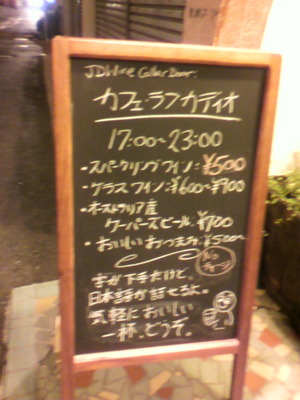 JDWine Cellar Door
カフェ・ラフカディオ
17:00~23:00
・スパークリングワイン:¥500
・グラスワイン:¥600~¥900
・オーストラリア産
クーパーズビール:¥700
・おいしいおつまみ:¥500~
字が下手だけど。
日本語が話せるよ。
気軽においしい
一杯、どうぞ。